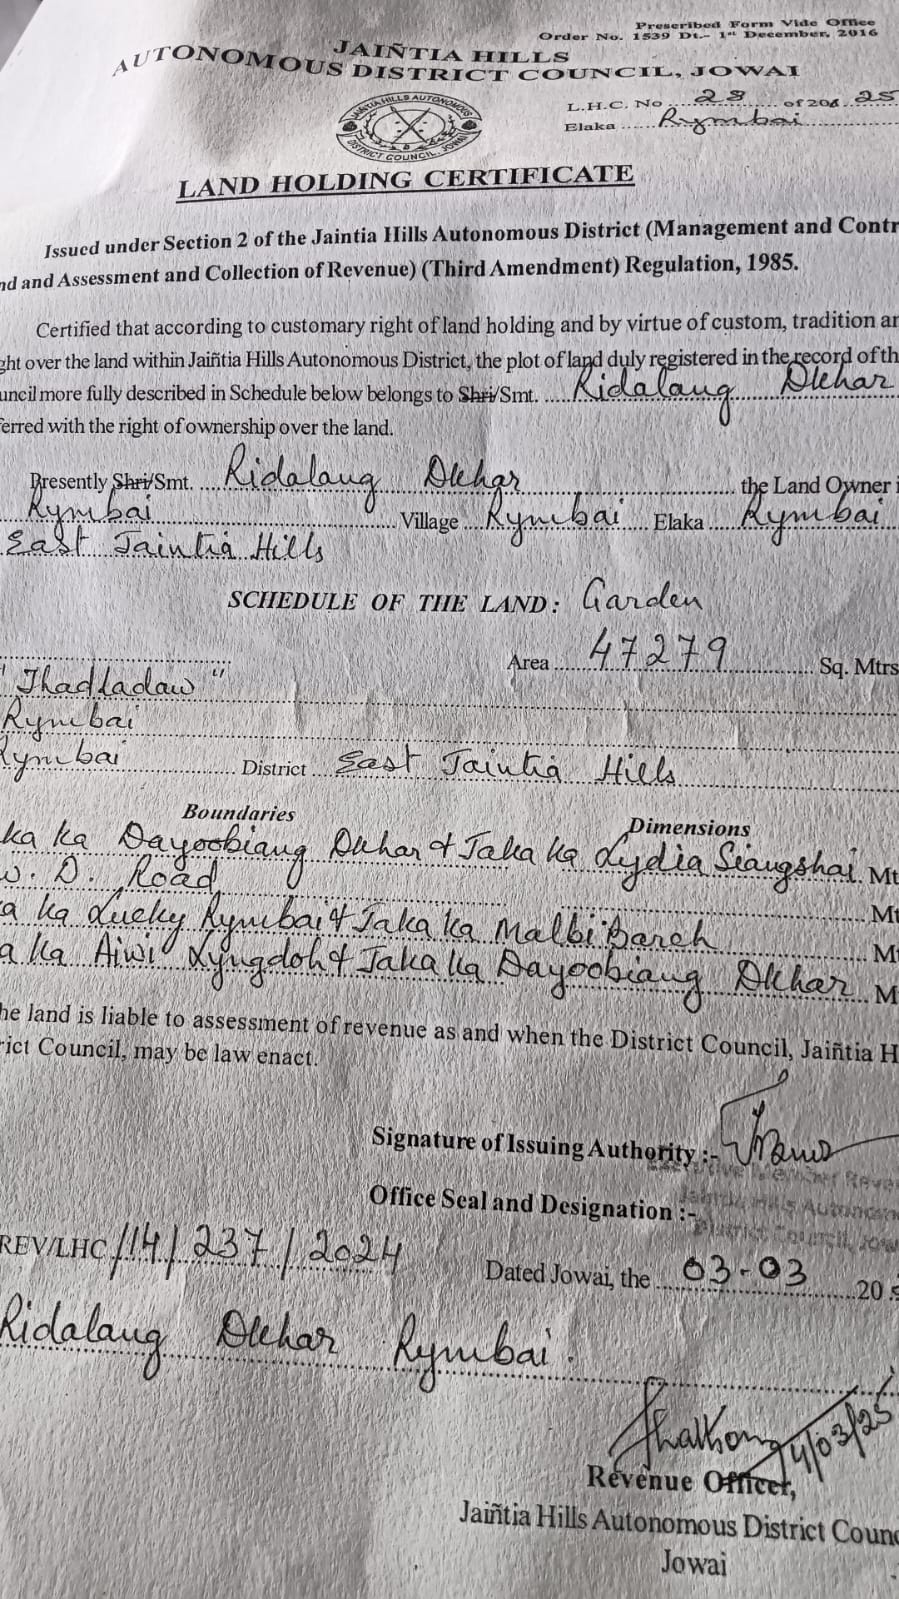 Prescribed Form Vide Office
Order No. 1539 Dt.- 1st December, 2016
JAIÑTIA HILLS
AUTONOMOUS DISTRICT COUNCIL, JOWAI
JAINTIA HILLS AUTONOMOUS
DISTRICT COUNCIL, JOWAI
L.H.C. No ....28.... of 20 ..25
Elaka ......Rymbai
LAND HOLDING CERTIFICATE
Issued under Section 2 of the Jaintia Hills Autonomous District (Management and Contr
nd and Assessment and Collection of Revenue) (Third Amendment) Regulation, 1985.
Certified that according to customary right of land holding and by virtue of custom, tradition an
ght over the land within Jaiñtia Hills Autonomous District, the plot of land duly registered in the record of th
uncil more fully described in Schedule below belongs to Shri/Smt. ....Ridalang Dkhar
erred with the right of ownership over the land.
Presently Shri/Smt. ...Ridalang Dkhar............ the Land Owner i
Rymbai ........ Village ...Rymbai.... Elaka ...Rymbai
East Jaintia Hills
SCHEDULE OF THE LAND: Garden
Area ....47279........ Sq. Mtrs
"Thadladaw"
Rymbai
Rymbai ........ District ...East Jaintia Hills
Boundaries Dimensions
ka ka Dayoobiang Dkhar & Jaka ka Lydia Siangshai. Mt
w. D. Road ........ Mt
a ka Lucky Rymbai & Jaka ka Malbi Bareh ........ M
a ka Aiwi Lyngdoh & Jaka ka Dayoobiang Dkhar. M
he land is liable to assessment of revenue as and when the District Council, Jaiñtia H
rict Council, may be law enact.
Signature of Issuing Authority :-
Executive Member Reve
Office Seal and Designation :-
Jaintia Hills Autonom
District Council, Jow
REV/LHC/14/237/2024
Dated Jowai, the ...03-03......20
Ridalang Dkhar Rymbai.
14/03/25
Revenue Officer,
Jaiñtia Hills Autonomous District Counc
Jowai